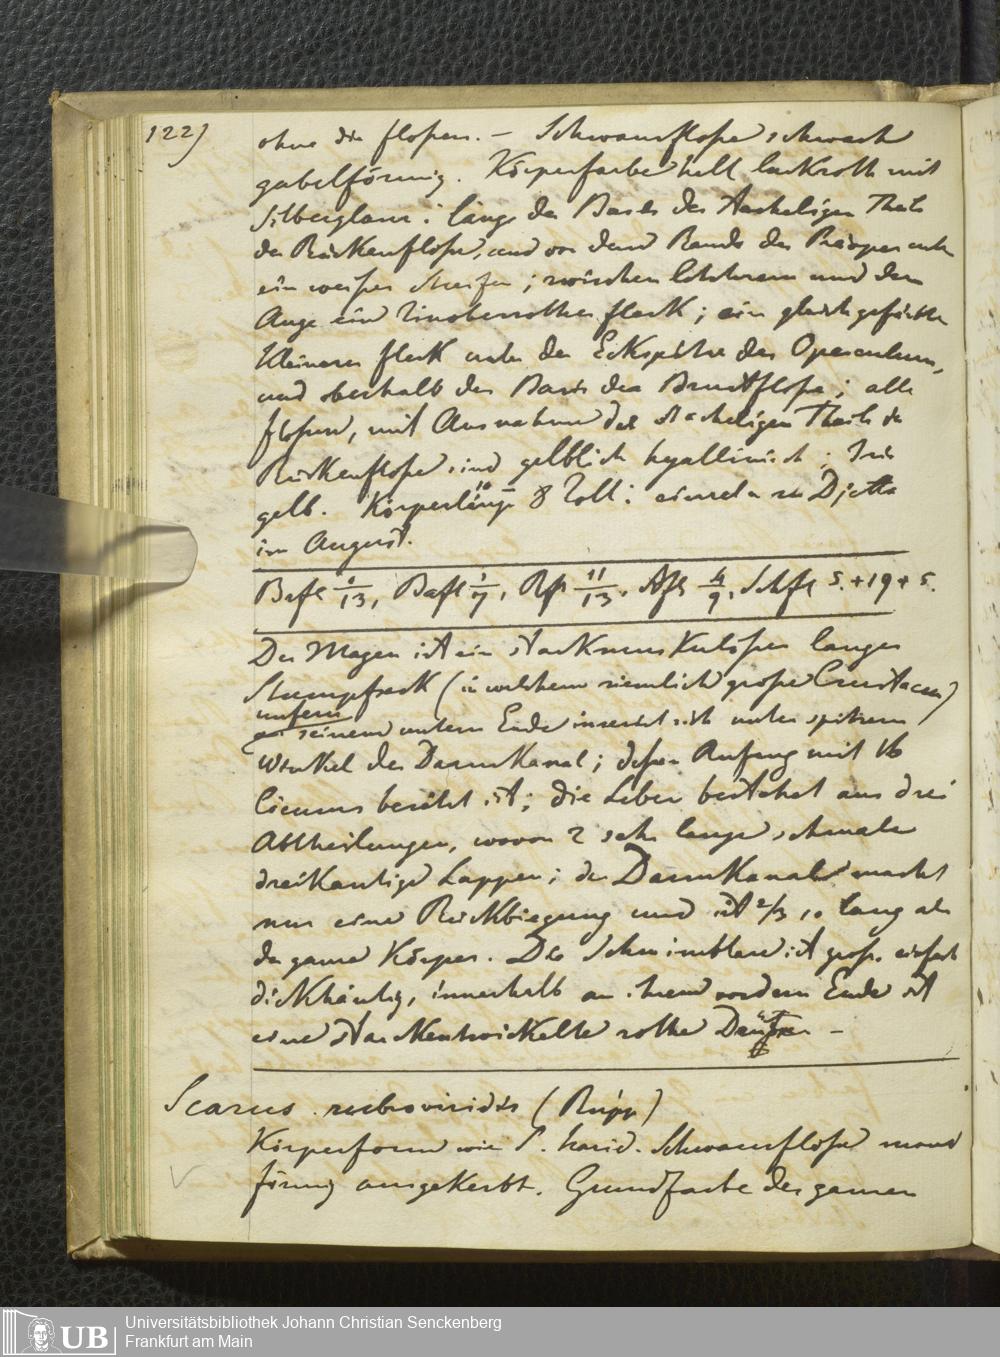 122)
ohne die flossen. – Schwanzflosse schwach
gabelförmig. Körperfarbe hell lackroth mit
Silberglanz: längs der Basis des stacheligen Theils
der Rückenflosse, und vor dem Rande des Präoperculum
ein weisser Streifen; zwischen letzterem und dem
Auge ein zinoberrother fleck; ein gleich gefärbter
kleinerer fleck unter der Eckspitze des Operculum,
und oberhalb der Basis der Brustflosse; alle
flossen, mit Ausnahme des stacheligen Theils der
Rückenflosse sind gelblich hyallinisch; Iris
gelb. Körperlänge 8 Zoll: einzeln zu Djetta
im August.
Brfl /13, Bafl 1/7, Rfl 11/13, Afl 4/9, Schfl 5.+19+5.
Der Magen ist ein starkmuskulöser langer
Stumpfsack (in welchem ziemlich grosse Crustaceen)
unfern
seinem untern Ende inserirt sich unter spitzem
Winkel der Darmkanal; dessen Anfang mit 16
Cöcums besetzt ist; die Leber bestehet aus drei
Abtheilungen, wovon 2 sehr lange schmale
dreikantige Lappen; der Darmkanal macht
nur eine Rückbiegung und ist 2/3 so lang als
der ganze Körper. Die Schwimmblase ist gross, einfach
dickhäutig, innerhalb an ihrem vordern Ende ist
eine starkentwickelte rothe Drüse –
Scarus rubroviridis (Rüpp)
Körperform wie S. harid. Schwanzflosse mond
förmig ausgekerbt. Grundfarbe des ganzen
Universitätsbibliothek Johann Christian Senckenberg
UB Frankfurt am Main